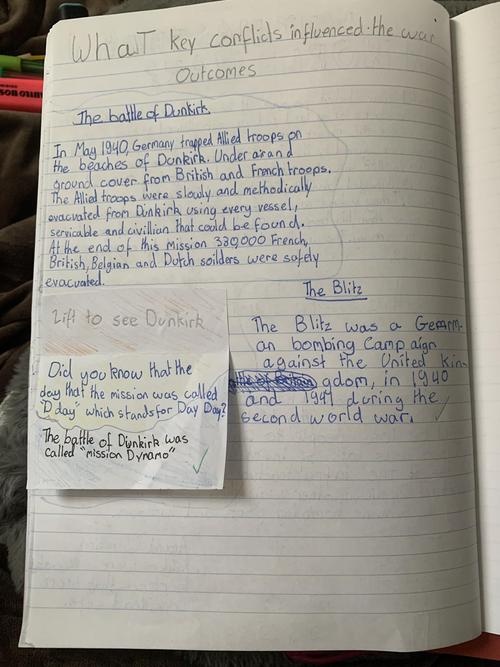 What key conflicts influenced the war
Outcomes
The battle of Dunkirk
In May 1940, Germany trapped Allied troops on
the beaches of Dunkirk. Under air and
ground cover from British and French troops.
The Allied troops were slowly and methodically
evacuated from Dunkirk using every vessel,
servicable and civillian that could be found.
At the end of this Mission 330,000 French,
British, Belgian and Dutch soilders were safely
evacuated.
Lift to see Dunkirk
Did you know that the
day that the mission was called
"D day" which stands for Day Day?
The battle of Dunkirk was
called "mission Dynamo"
The Blitz
The Blitz was a Germ-
an bombing Campaign
against the United kin-
gdom, in 1940
and 1941 during the
second world war.